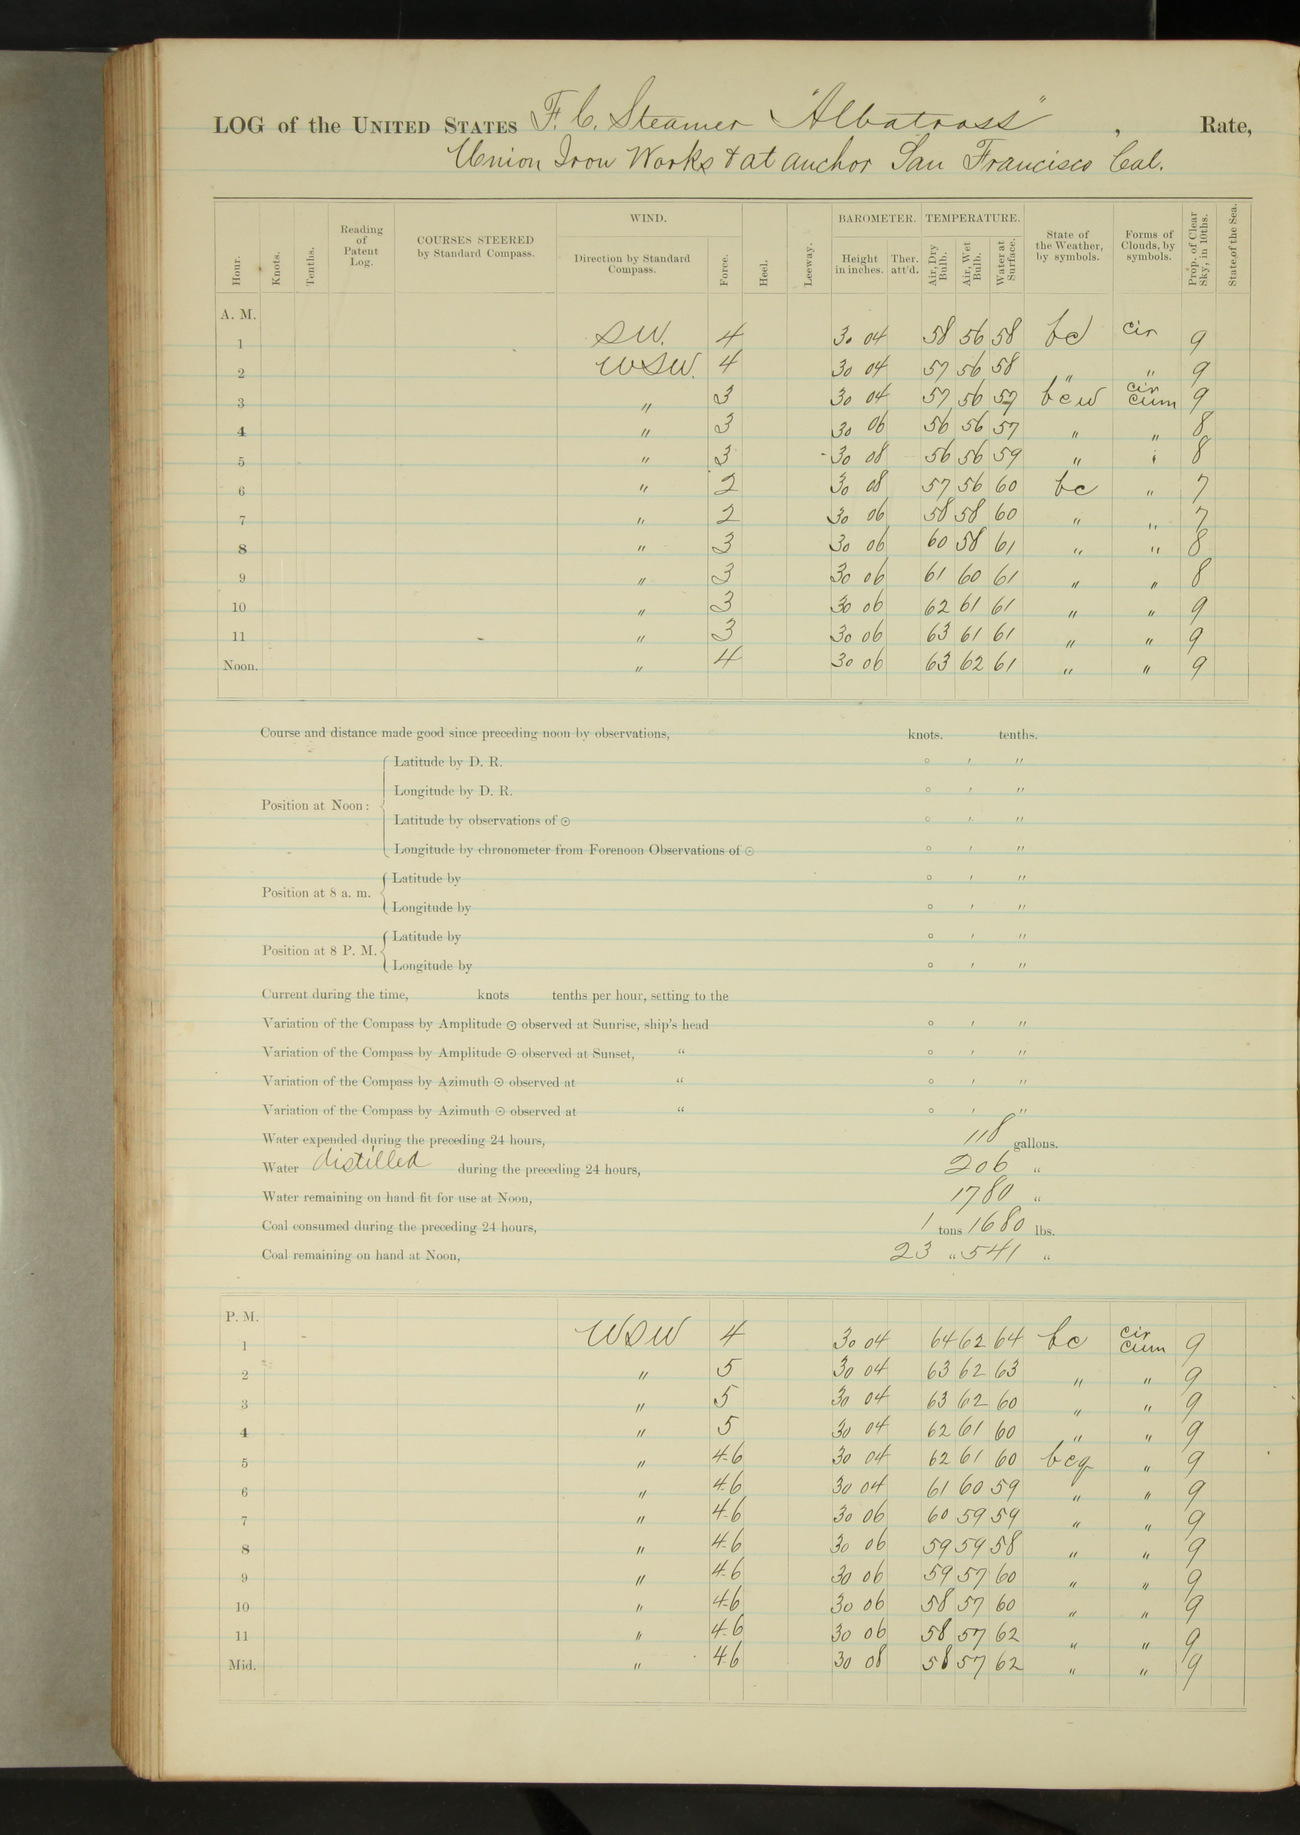 LOG of the UNITED STATES F. C. Steamer "Albatross", Rate,
Union Iron Works & at anchor San Francisco Cal.
WIND. BAROMETER. TEMPERATURE.
Hour. Knots. Tenths. Reading of Patent Log. COURSES STEERED by Standard Compass. Direction by Standard Compass. Force. Heel. Leeway. Height in inches. Ther. att'd. Air, Dry Bulb. Air, Wet Bulb. Water at Surface. State of the Weather, by symbols. Forms of Clouds, by symbols. Prop. of Clear Sky, in 10ths. State of the Sea.
A. M.
1 SW. 4 30 04 58 56 58 bc cir 9
2 WSW. 4 30 04 57 56 58 " " 9
3 " 3 30 04 57 56 57 bcw cir cum 9
4 " 3 30 06 56 56 57 " " 8
5 " 3 30 08 56 56 59 " " 8
6 " 2 30 08 57 56 60 bc " 7
7 " 2 30 06 58 58 60 " " 7
8 " 3 30 06 60 58 61 " " 8
9 " 3 30 06 61 60 61 " " 8
10 " 3 30 06 62 61 61 " " 9
11 " 3 30 06 63 61 61 " " 9
Noon. " 4 30 06 63 62 61 " " 9
Course and distance made good since preceding noon by observations, knots. tenths.
Position at Noon:
Latitude by D. R. ° ′ ″
Longitude by D. R. ° ′ ″
Latitude by observations of ☉ ° ′ ″
Longitude by chronometer from Forenoon Observations of ☉ ° ′ ″
Position at 8 a. m.
Latitude by ° ′ ″
Longitude by ° ′ ″
Position at 8 P. M.
Latitude by ° ′ ″
Longitude by ° ′ ″
Current during the time, knots tenths per hour, setting to the
Variation of the Compass by Amplitude ☉ observed at Sunrise, ship's head ° ′ ″
Variation of the Compass by Amplitude ☉ observed at Sunset, " ° ′ ″
Variation of the Compass by Azimuth ☉ observed at " ° ′ ″
Variation of the Compass by Azimuth ☉ observed at " ° ′ ″
Water expended during the preceding 24 hours, 118 gallons.
Water distilled during the preceding 24 hours, 206 "
Water remaining on hand fit for use at Noon, 1780 "
Coal consumed during the preceding 24 hours, 1 tons 1680 lbs.
Coal remaining on hand at Noon, 23 " 541 "
P. M.
1 WSW 4 30 04 64 62 64 bc cir cum 9
2 " 5 30 04 63 62 63 " " 9
3 " 5 30 04 63 62 60 " " 9
4 " 5 30 04 62 61 60 " " 9
5 " 4-6 30 04 62 61 60 bcq " 9
6 " 4-6 30 04 61 60 59 " " 9
7 " 4-6 30 06 60 59 59 " " 9
8 " 4-6 30 06 59 59 58 " " 9
9 " 4-6 30 06 59 57 60 " " 9
10 " 4-6 30 06 58 57 60 " " 9
11 " 4-6 30 06 58 57 62 " " 9
Mid. " 4-6 30 08 58 57 62 " " 9